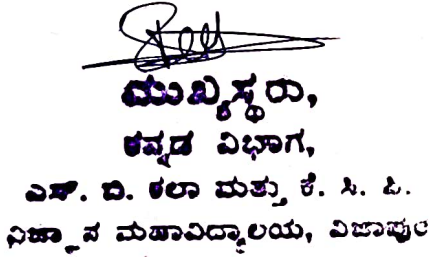 ಮುಖ್ಯಸ್ಥರು,
ಕನ್ನಡ ವಿಭಾಗ,
ಎಸ್. ಬಿ. ಕಲಾ ಮತ್ತು ಕೆ. ಸಿ. ಪಿ.
ವಿಜ್ಞಾನ ಮಹಾವಿದ್ಯಾಲಯ, ವಿಜಾಪುರ